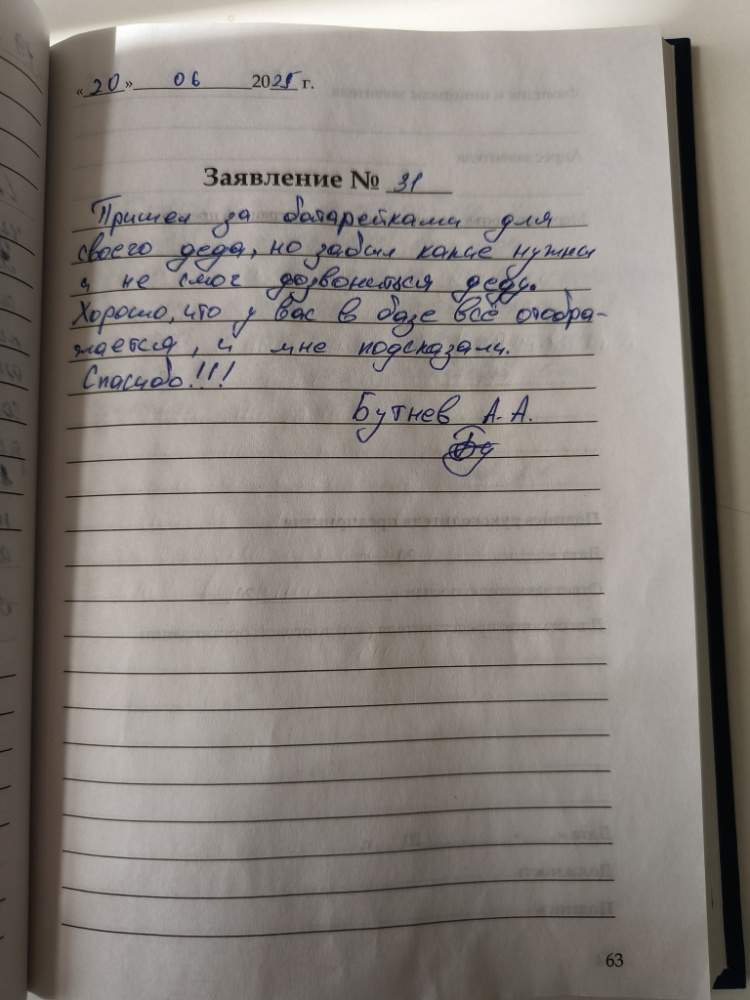 «20» 06 2025 г.
Заявление № 31
Пришел за батарейками для
своего деда, но забыл какие нужны
и не смог дозвониться деду.
Хорошо, что у вас в базе всё отобра-
жается, и мне подсказали.
Спасибо!!!
Бутнев А.А.
63